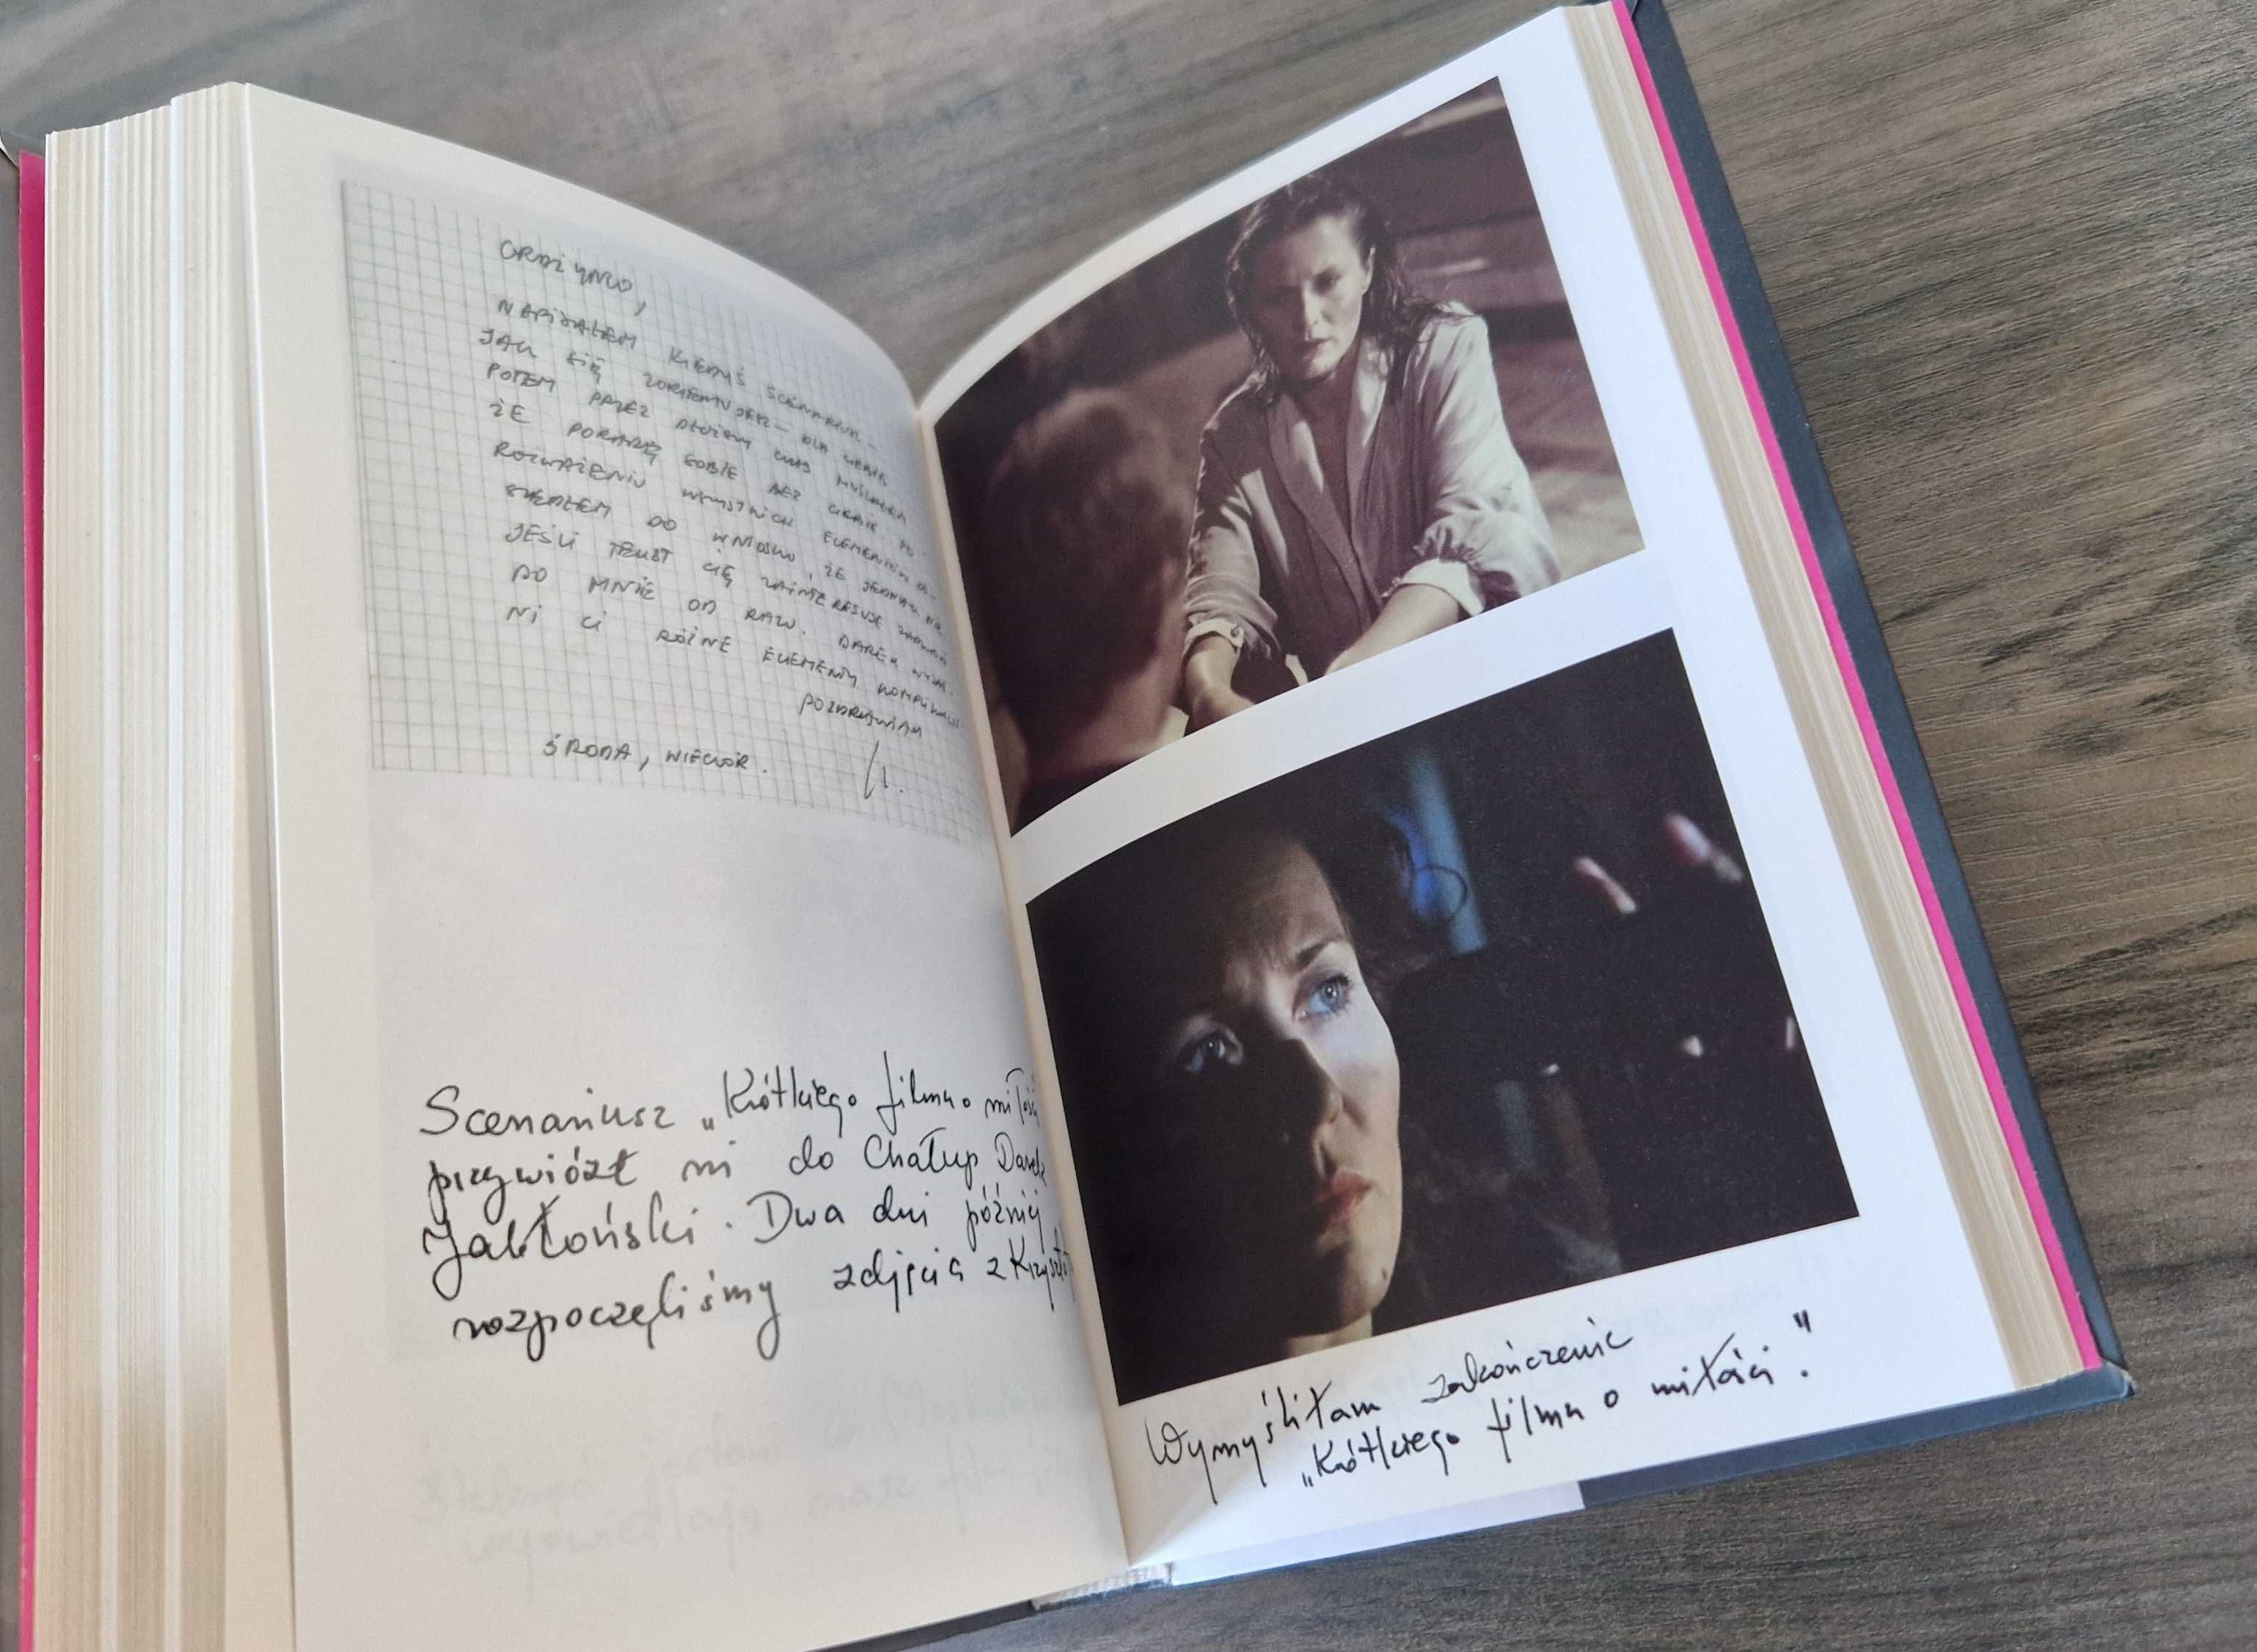 GRAŻYNKO,
NAPISAŁEM KIEDYŚ SCENARIUSZ –
JAK SIĘ ZORIENTUJESZ – DLA CIEBIE.
POTEM PRZEZ DŁUŻSZY CZAS MYŚLAŁEM
ŻE PORADZĘ SOBIE BEZ CIEBIE. PO
ROZWAŻENIU WSZYSTKICH ELEMENTÓW DO-
SZEDŁEM DO WNIOSKU, ŻE JEDNAK NIE.
JEŚLI TEKST CIĘ ZAINTERESUJE ZADZWOŃ
DO MNIE OD RAZU. DAREK WYJAŚ-
NI CI RÓŻNE ELEMENTY KOMPLIKACJI
POZDRAWIAM
K.
ŚRODA, WIECZÓR.
Scenariusz „Krótkiego filmu o miłości
przywiózł mi do Chałup Darek
Jabłoński. Dwa dni później
rozpoczęliśmy zdjęcia z
Wymyśliłam zakończenie
„Krótkiego filmu o miłości."